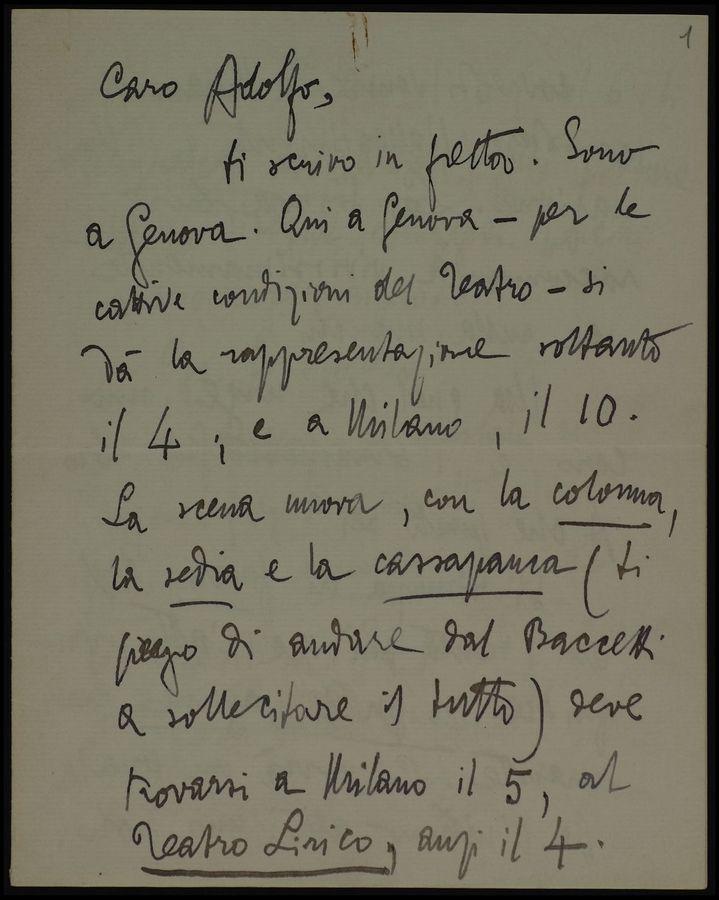 1
Caro Adolfo,
ti scrivo in fretta. Sono
a Genova. Qui a Genova – per le
cattive condizioni del Teatro – si
dà la rappresentazione soltanto
il 4, e a Milano, il 10.
La scena nuova, con la colonna,
la sedia e la cassapanca (ti
prego di andare dal Baccetti
a sollecitare il tutto) deve
trovarsi a Milano il 5, al
Teatro Lirico, anzi il 4.